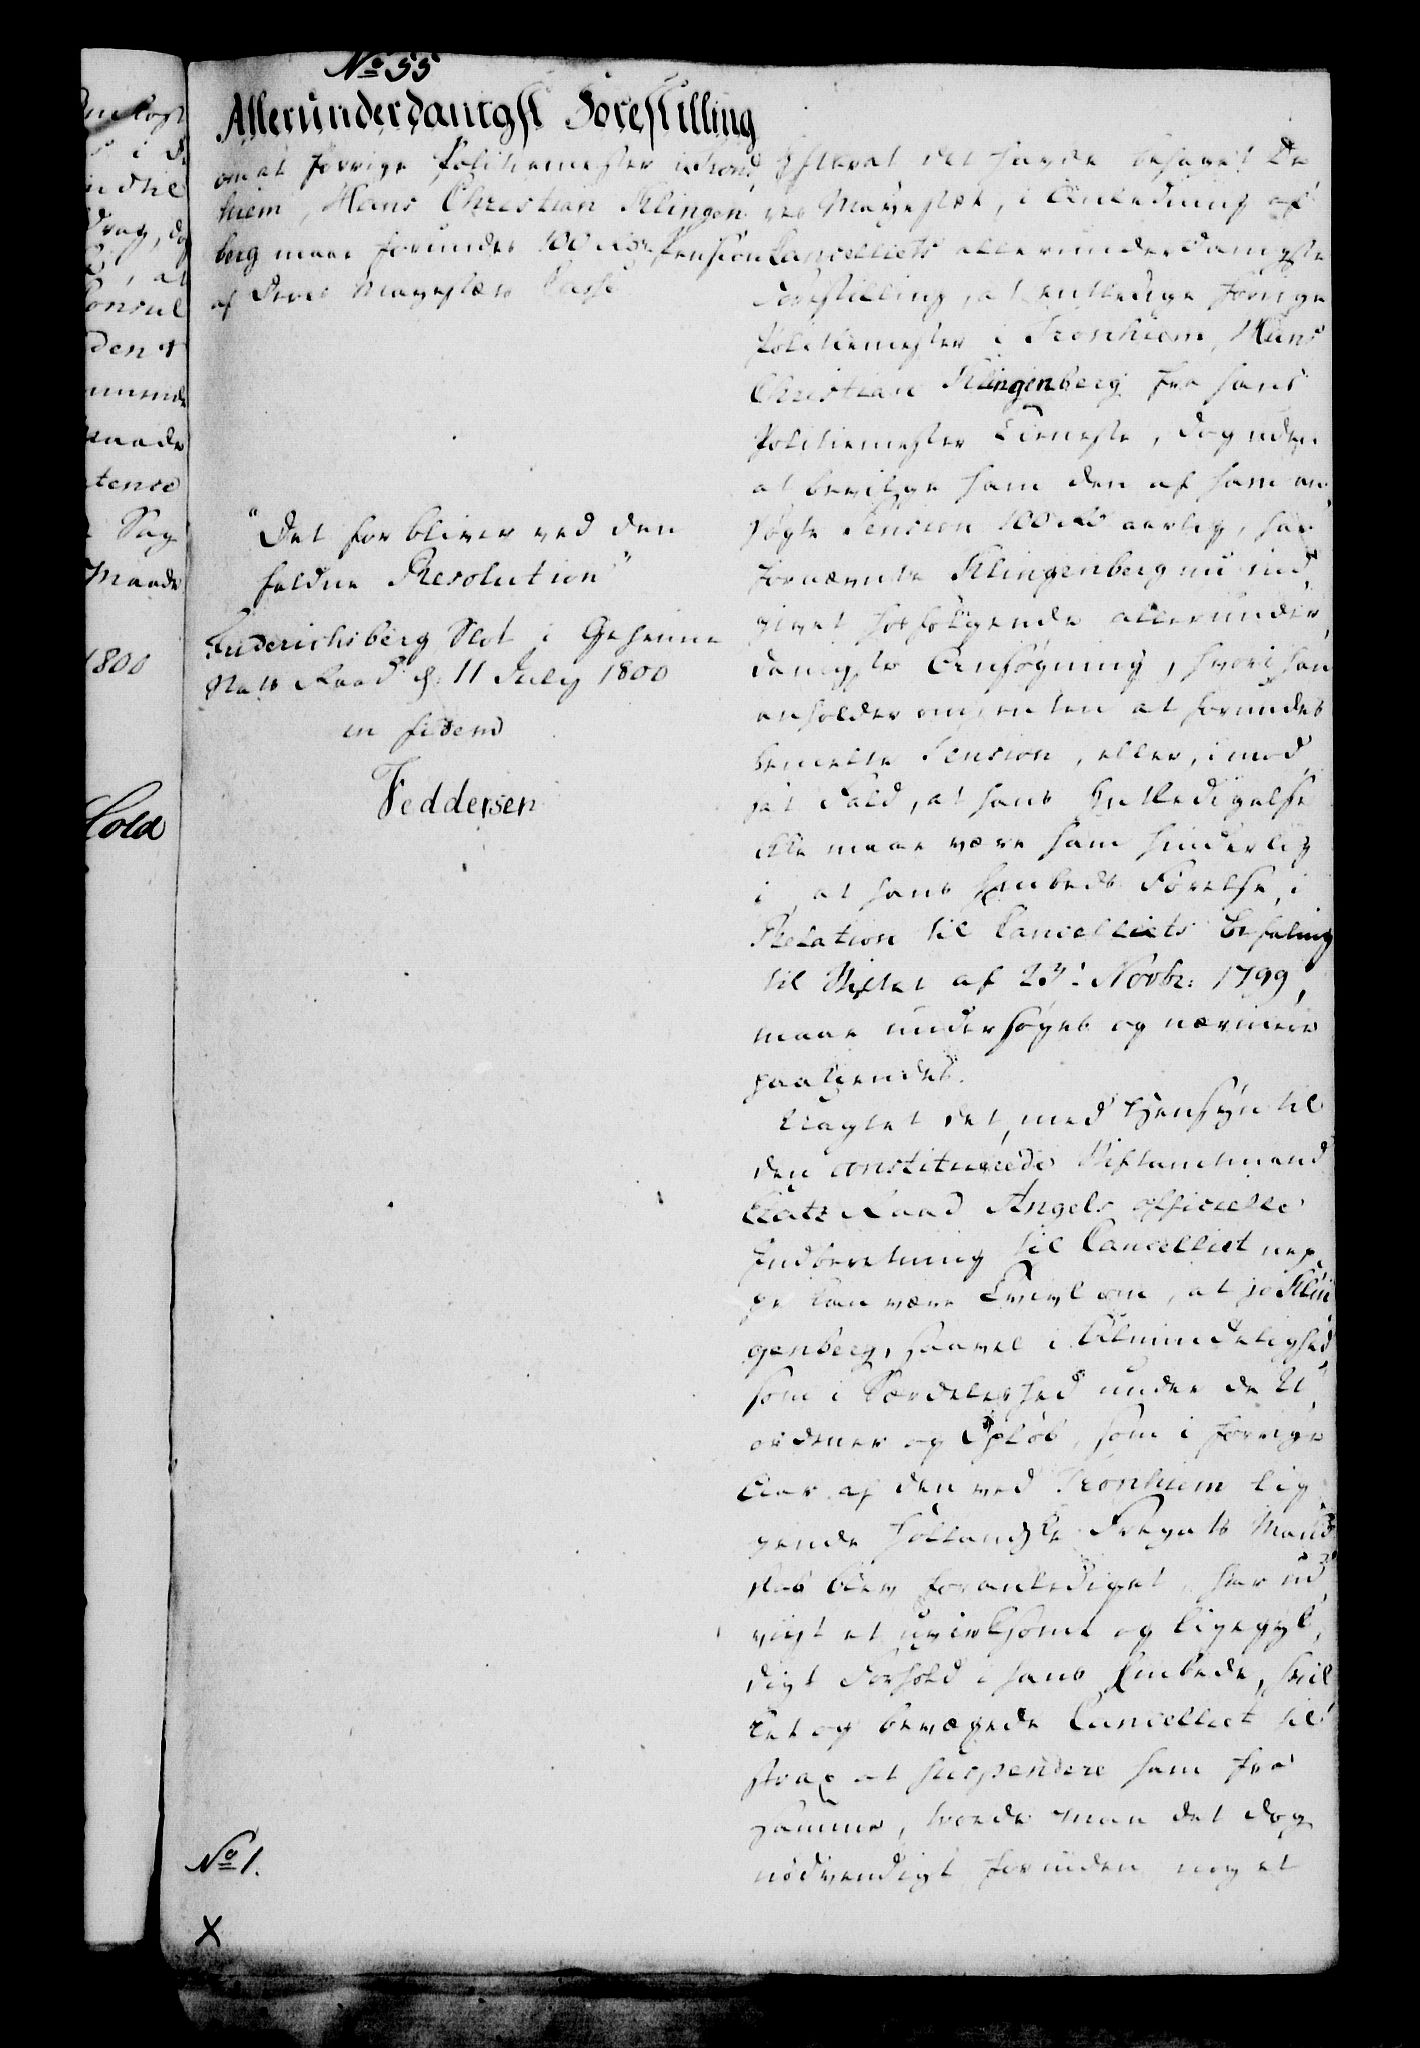 No 55
Allerunderdanigst Forestilling
om at forrige Politiemester i Trond,
hiem, Hans Christian Klingen,
berg maae forundes 100 Rdr Pension
af Deres Majestæts Casse
"Det forbliver ved den
faldne Resolution"
Friderichsberg Slot i Geheime
Stats Raad d: 11 July 1800
in fidem
Feddersen
No 1.
X
Efterat det havde behaget De,
res Majestæt, i Anledning af
Cancelliets allerunderdanigste
Forestilling, at entledige forrige
Politiemester i Tronhiem, Hans
Christian Klingenberg fra hans
Politiemester Tieneste, dog uden
at bevilge ham den af ham an,
søgte Pension 100 Rd aarlig, har
fornævnte Klingenberg nu ind,
givet hosfølgende allerunder,
danigste Ansøgning, hvori han
anholder om enten at forundes
bemelte Pension, eller, i mod,
sat Fald, at hans Entledigelse
ikke maae være ham hinderlig
i, at hans Embeds Førelse, i
Relation til Cancelliets Befaling
til Stiftet af 23de Novbr: 1799,
maae undersøges og nærmere
paakiendes.
Uagtet det, med Hensyn til
den constituerede Stiftamtmand
Etats Raad Angels officielle
Indberetning til Cancelliet nep,
pe kan være Tvivl om, at jo Klin,
genberg, saavel i Almindelighed
som i Særdeleshed under de U,
ordener og Opløb, som i forrige
Aar af den ved Tronhiem lig,
gende hollandske Fregats Mand,
skab blev foranlediget, har ud,
viist et uvirksomt og ligegyl,
digt Forhold i hans Embede, hvil
ket og bevægede Cancelliet til
strax at suspendere ham fra
samme, troede man det dog
nødvendigt forinden noget
1800
Cold